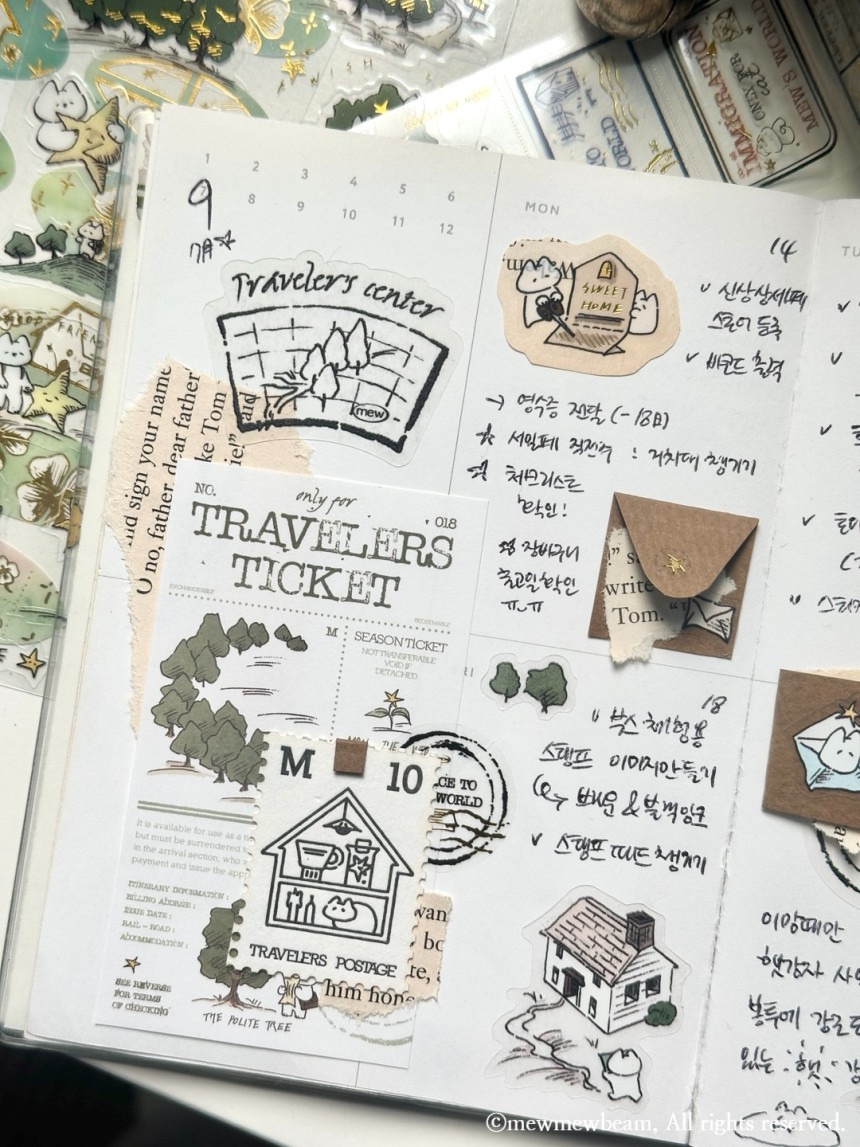 1 2 3 4 5 6
8 9 10 11 12
9
Travelers center
mew
and sign your name
O no, father, dear father
ke Tom
ie!"
said
NO.
only for
018
TRAVELERS
TICKET
M
SEASON TICKET
NOT TRANSFERABLE
VOID IF
DETACHED
M 10
TRAVELERS POSTAGE
CE TO
WORLD
It is available for use as a
but must be surrendered
in the arrival section, who
payment and issue the app
ITINERARY INFORMATION :
BILLING ADDRESS :
ISSUE DATE :
RAIL - ROAD :
ACCOMMODATION :
SEE REVERSE
FOR TERMS
OF CHECKING
THE POLITE TREE
wan
bo
re, a
him hon
MON
14
SWEET
HOME
신상상세페
스토어 등록
바코드 출력
→ 영수증 전달 (-18日)
☆ 서일페 직전주 : 거치대 챙기기
체크리스트
확인!
장바구니
출고일 확인
ㅠ_ㅠ
!" s
write
Tom. "
18
박스 체험용
스탬프 이미지 만들기
스탬프 패드 챙기기
TU
이맘때만
햇감자
봉투에
있는
IMMIGRATION
ONLY FOR
cat
MEW'S WORLD
©mewmewbeam, All rights reserved.